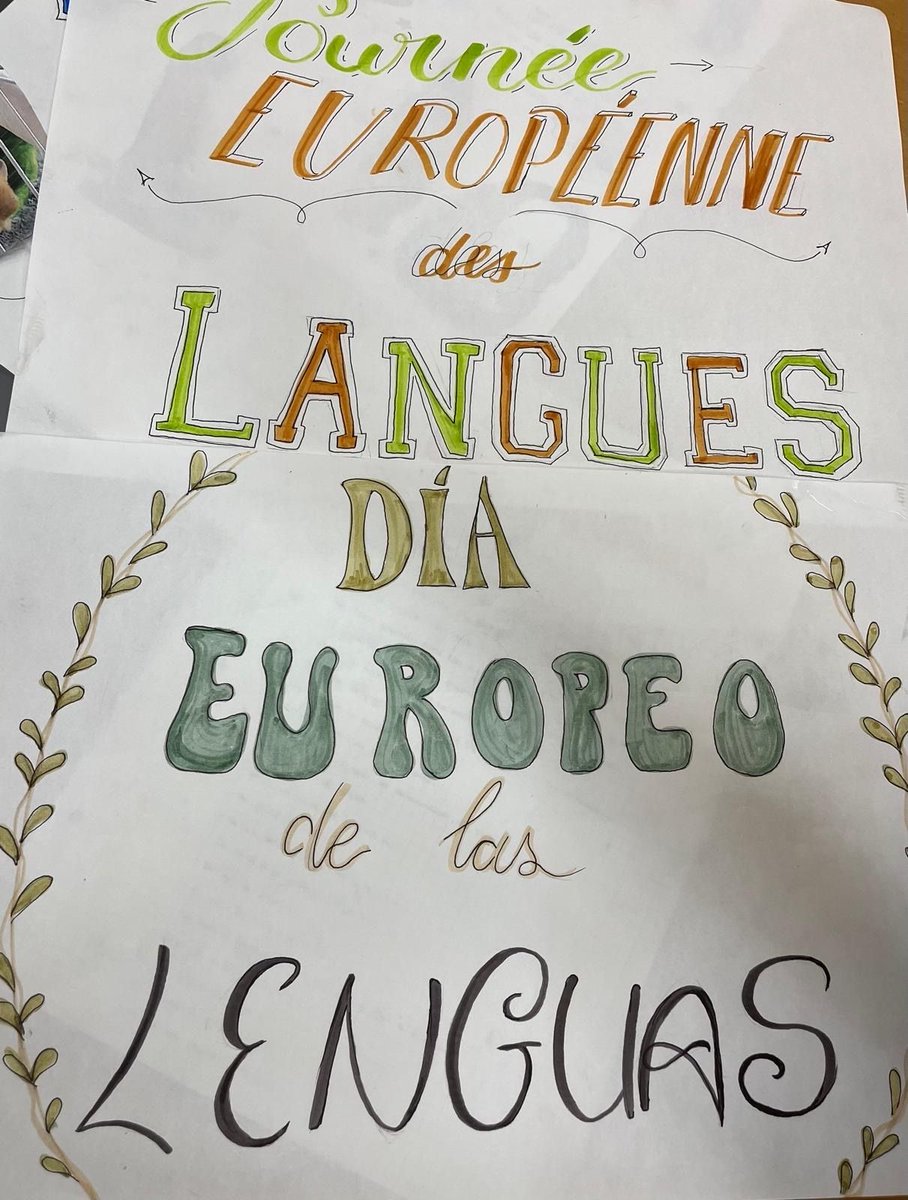 Journée
EUROPÉENNE
des
LANGUES
DÍA
EUROPEO
de las
LENGUAS